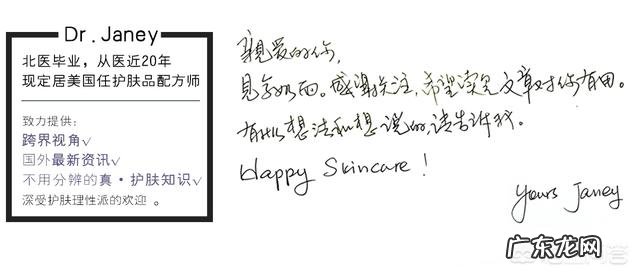 Dr. Janey
北医毕业，从医近20年
现定居美国任护肤品配方师
致力提供：
跨界视角√
国外最新资讯√
不用分辨的真·护肤知识√
深受护肤理性派的欢迎 。
親爱的你,
見字如面。感謝关注,希望读完文章对你有用。
有什么想法和想说的,请告诉我。
Happy Skincare !
Yours Janey
广东龙网